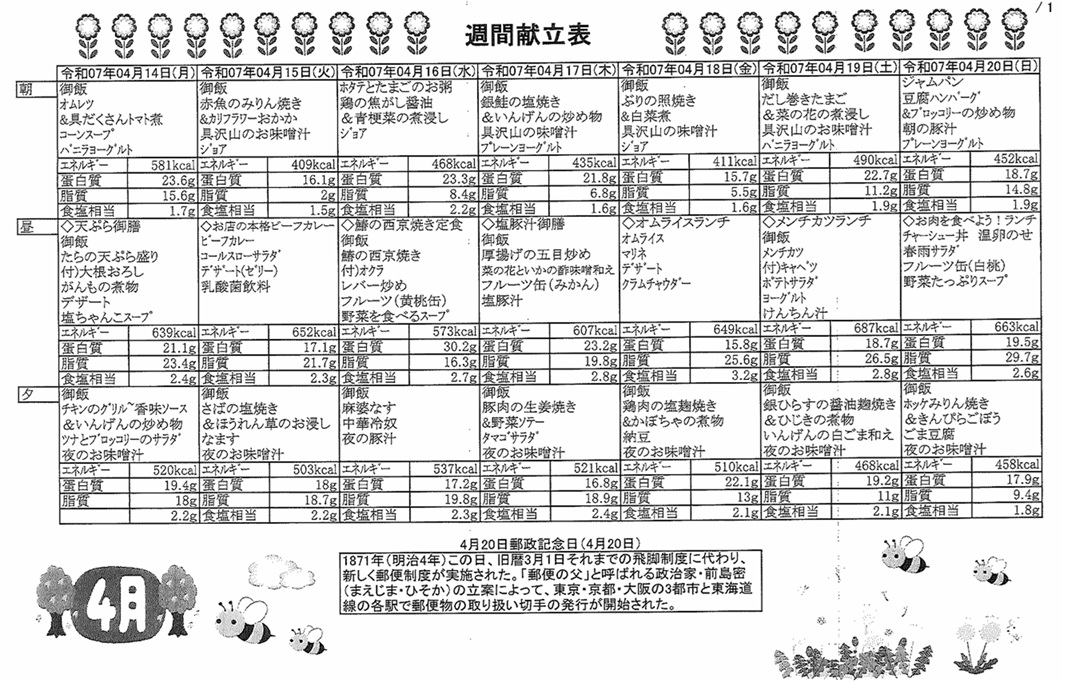 / 1
週間献立表
令和07年04月14日(月) 令和07年04月15日(火) 令和07年04月16日(水) 令和07年04月17日(木) 令和07年04月18日(金) 令和07年04月19日(土) 令和07年04月20日(日)
朝
御飯 御飯 ホタテとたまごのお粥 御飯 御飯 御飯 ジャムパン
オムレツ 赤魚のみりん焼き 鶏の焦がし醤油 銀鮭の塩焼き ぶりの照焼き だし巻きたまご 豆腐ハンバーグ
&具だくさんトマト煮 &カリフラワーおかか &青梗菜の煮浸し &いんげんの炒め物 &白菜煮 &菜の花の煮浸し &ブロッコリーの炒め物
コーンスープ 具沢山のお味噌汁 ジョア 具沢山の味噌汁 具沢山の味噌汁 具沢山の味噌汁 朝の豚汁
バニラヨーグルト ジョア プレーンヨーグルト ジョア バニラヨーグルト プレーンヨーグルト
エネルギー 581kcal エネルギー 409kcal エネルギー 468kcal エネルギー 435kcal エネルギー 411kcal エネルギー 490kcal エネルギー 452kcal
蛋白質 23.6g 蛋白質 16.1g 蛋白質 23.3g 蛋白質 21.8g 蛋白質 15.7g 蛋白質 22.7g 蛋白質 18.7g
脂質 15.6g 脂質 2g 脂質 8.4g 脂質 6.8g 脂質 5.5g 脂質 11.2g 脂質 14.8g
食塩相当 1.7g 食塩相当 1.5g 食塩相当 2.2g 食塩相当 1.6g 食塩相当 1.6g 食塩相当 1.9g 食塩相当 1.9g
昼
◇天ぷら御膳 ◇お店の本格ビーフカレー ◇鰆の西京焼き定食 ◇塩豚汁御膳 ◇オムライスランチ ◇メンチカツランチ ◇お肉を食べよう!ランチ
御飯 ビーフカレー 御飯 御飯 オムライス 御飯 チャーシュー丼 温卵のせ
たらの天ぷら盛り コールスローサラダ 鰆の西京焼き 厚揚げの五目炒め マリネ メンチカツ 春雨サラダ
付)大根おろし デザート(ゼリー) 付)オクラ 菜の花といかの酢味噌和え デザート 付)キャベツ フルーツ缶(白桃)
がんもの煮物 乳酸菌飲料 レバー炒め フルーツ缶(みかん) クラムチャウダー ポテトサラダ 野菜たっぷりスープ
デザート フルーツ(黄桃缶) 塩豚汁 ヨーグルト
塩ちゃんこスープ 野菜を食べるスープ けんちん汁
エネルギー 639kcal エネルギー 652kcal エネルギー 573kcal エネルギー 607kcal エネルギー 649kcal エネルギー 687kcal エネルギー 663kcal
蛋白質 21.1g 蛋白質 17.1g 蛋白質 30.2g 蛋白質 23.2g 蛋白質 15.8g 蛋白質 18.7g 蛋白質 19.5g
脂質 23.4g 脂質 21.7g 脂質 16.3g 脂質 19.8g 脂質 25.6g 脂質 26.5g 脂質 29.7g
食塩相当 2.4g 食塩相当 2.3g 食塩相当 2.7g 食塩相当 2.8g 食塩相当 3.2g 食塩相当 2.8g 食塩相当 2.6g
夕
御飯 御飯 御飯 御飯 御飯 御飯 御飯
チキンのグリル~香味ソース さばの塩焼き 麻婆なす 豚肉の生姜焼き 鶏肉の塩麹焼き 銀ひらすの醤油麹焼き ホッケみりん焼き
&いんげんの炒め物 &ほうれん草のお浸し 中華冷奴 &野菜ソテー &かぼちゃの煮物 &ひじきの煮物 &きんぴらごぼう
ツナとブロッコリーのサラダ なます 夜の豚汁 タマゴサラダ 納豆 いんげんの白ごま和え ごま豆腐
夜のお味噌汁 夜のお味噌汁 夜のお味噌汁 夜のお味噌汁 夜のお味噌汁 夜のお味噌汁
エネルギー 520kcal エネルギー 503kcal エネルギー 537kcal エネルギー 521kcal エネルギー 510kcal エネルギー 468kcal エネルギー 458kcal
蛋白質 19.4g 蛋白質 18g 蛋白質 17.2g 蛋白質 16.8g 蛋白質 22.1g 蛋白質 19.2g 蛋白質 17.9g
脂質 18g 脂質 18.7g 脂質 19.8g 脂質 18.9g 脂質 13g 脂質 11g 脂質 9.4g
2.2g 食塩相当 2.2g 食塩相当 2.3g 食塩相当 2.4g 食塩相当 2.1g 食塩相当 2.1g 食塩相当 1.8g
4月20日郵政記念日(4月20日)
1871年(明治4年)この日、旧暦3月1日それまでの飛脚制度に代わり、
新しく郵便制度が実施された。「郵便の父」と呼ばれる政治家・前島密
(まえじま・ひそか)の立案によって、東京・京都・大阪の3都市と東海道
線の各駅で郵便物の取り扱い切手の発行が開始された。
4月